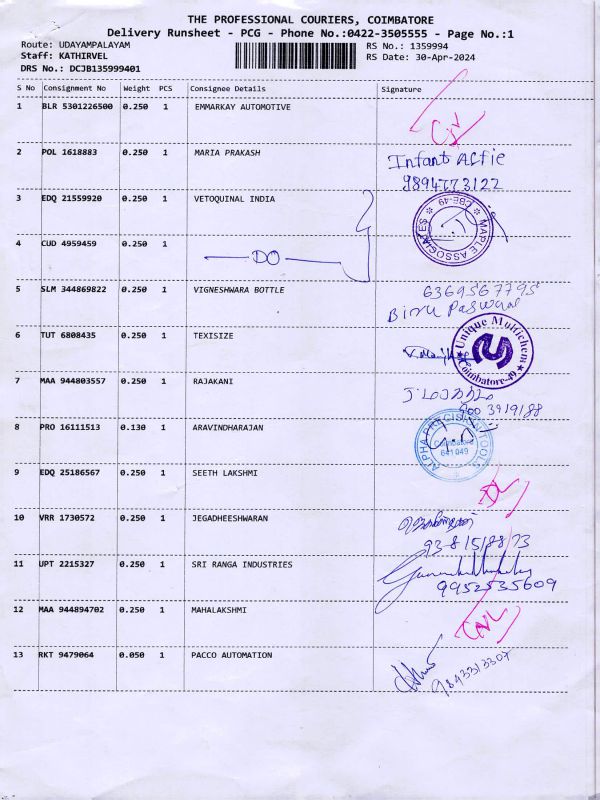 THE PROFESSIONAL COURIERS, COIMBATORE
Delivery Runsheet - PCG - Phone No.:0422-3505555 - Page No.:1
Route: UDAYAMPALAYAM RS No.: 1359994
Staff: KATHIRVEL RS Date: 30-Apr-2024
DRS No.: DCJB135999401
S No Consignment No Weight PCS Consignee Details Signature
1 BLR 5301226500 0.250 1 EMMARKAY AUTOMOTIVE
2 POL 1618883 0.250 1 MARIA PRAKASH Infant Alfie
9894773122
3 EDQ 21559920 0.250 1 VETOQUINAL INDIA
MAPLE ASSOCIATES CBE-49
4 CUD 4959459 0.250 1 DO
5 SLM 344869822 0.250 1 VIGNESHWARA BOTTLE 6369567795
Biru Paswan
6 TUT 6808435 0.250 1 TEXISIZE
Unique Multichem Coimbatore-49
7 MAA 944803557 0.250 1 RAJAKANI
8 PRO 16111513 0.130 1 ARAVINDHARAJAN
ALPHA PRECISION TOOLS Coimbatore 641 049
9 EDQ 25186567 0.250 1 SEETH LAKSHMI
10 VRR 1730572 0.250 1 JEGADHEESHWARAN
11 UPT 2215327 0.250 1 SRI RANGA INDUSTRIES
9952535609
12 MAA 944894702 0.250 1 MAHALAKSHMI
13 RKT 9479064 0.050 1 PACCO AUTOMATION
9843313307